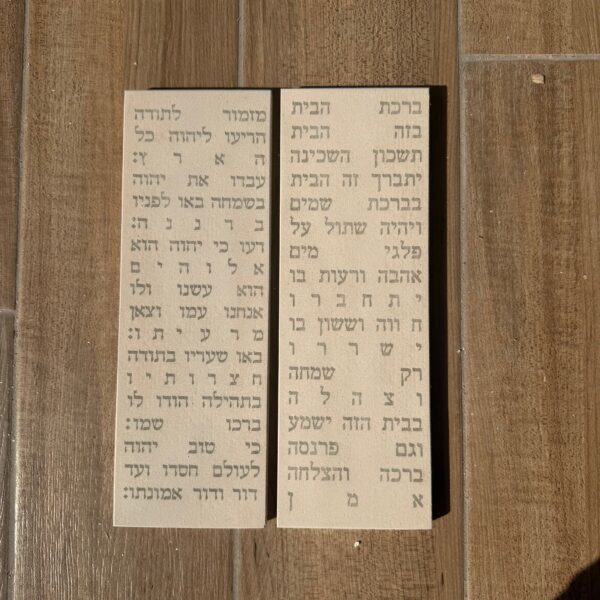 ברכת הבית
בזה הבית
תשכון השכינה
יתברך זה הבית
בברכת שמים
ויהיה שתול על
פלגי מים
אהבה ורעות בו
י ת ח ב ר ו
ח ווה וששון בו
י ש ר ר ו
רק שמחה
ו צ ה ל ה
בבית הזה ישמע
וגם פרנסה
ברכה והצלחה
א מ ן
מזמור לתודה
הריעו ליהוה כל
ה א ר ץ:
עבדו את יהוה
בשמחה באו לפניו
ב ר נ נ ה:
דעו כי יהוה הוא
א ל ו ה י ם
הוא עשנו ולו
אנחנו עמו וצאן
מ ר ע י ת ו:
באו שעריו בתודה
ח צ ר ו ת י ו
בתהילה הודו לו
ברכו שמו:
כי טוב יהוה
לעולם חסדו ועד
דור ודור אמונתו: